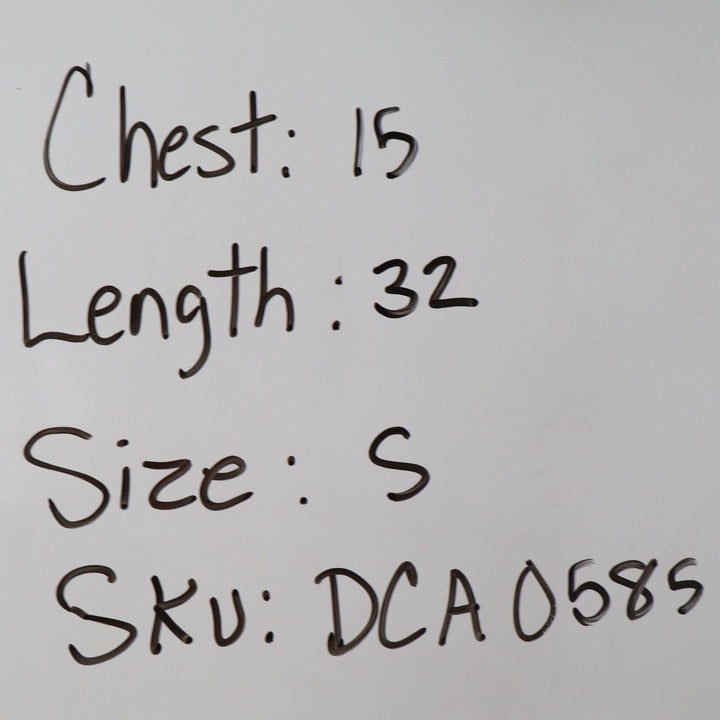 Chest: 15
Length: 32
Size: S
SKU: DCA0585